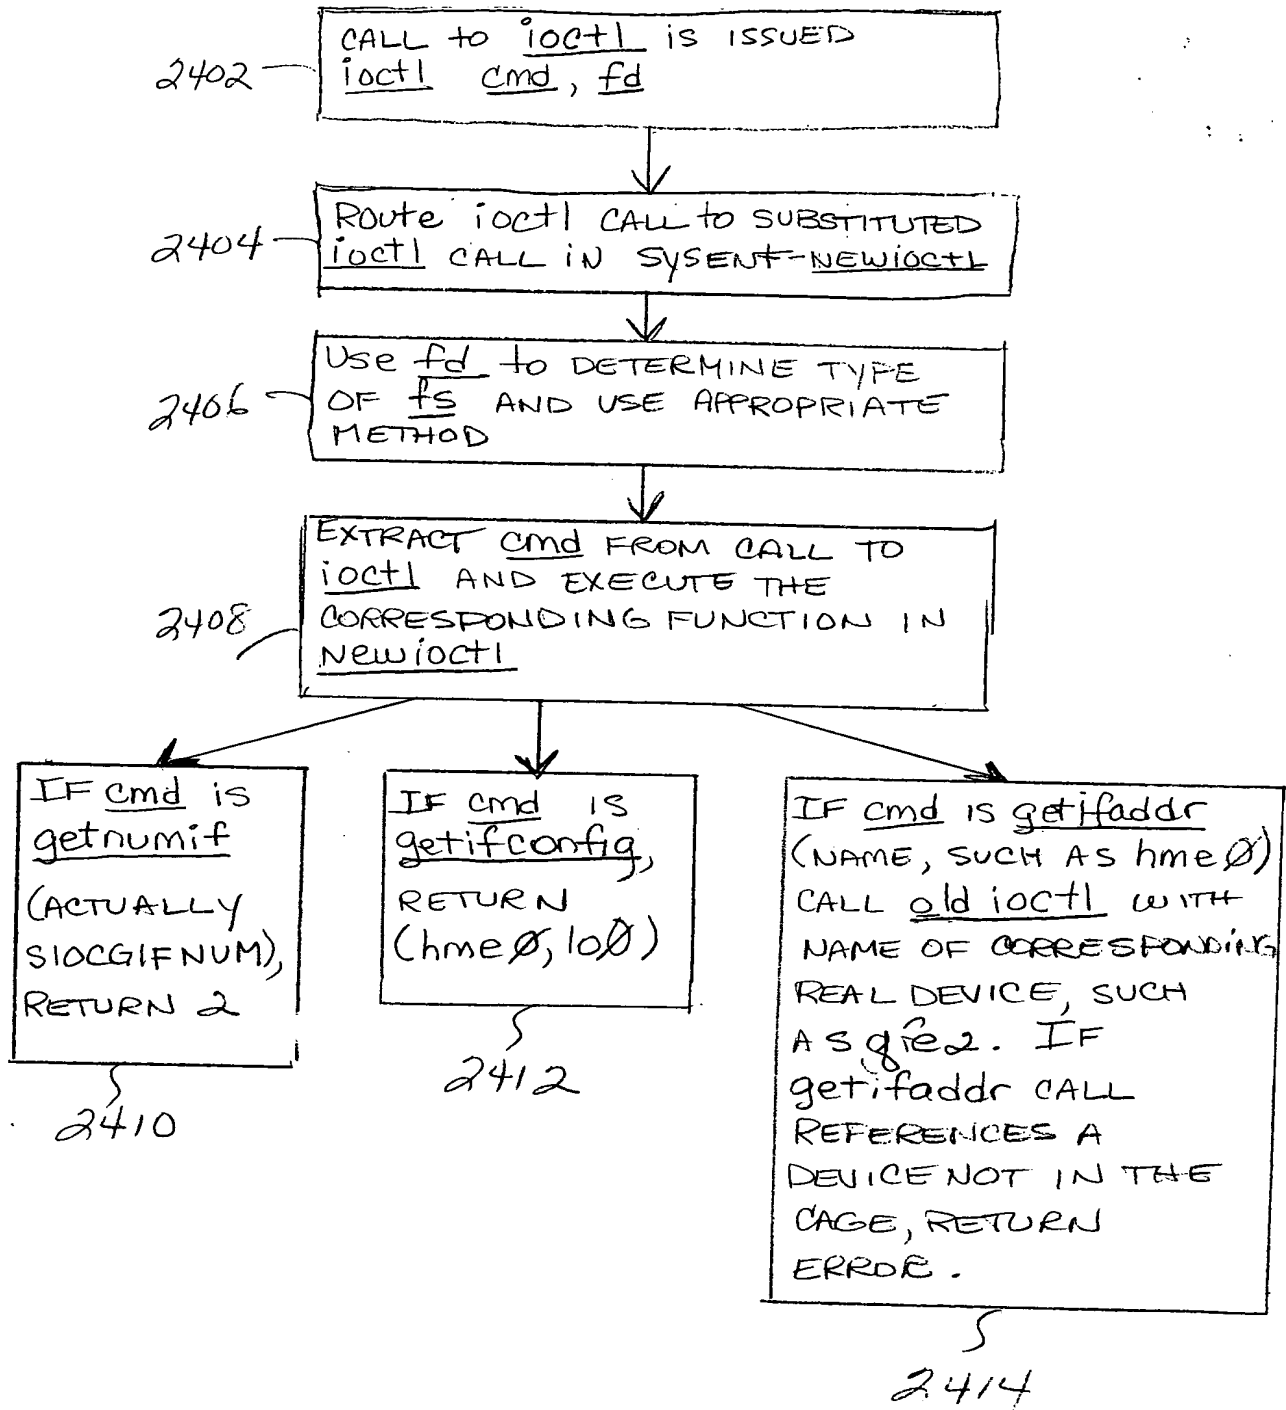 CALL to ioctl is ISSUED
ioctl cmd, fd
2402
Route ioctl CALL to SUBSTITUTED
ioctl CALL IN SYSENT-NEWioctL
2404
Use fd to DETERMINE TYPE
OF fs AND USE APPROPRIATE
METHOD
2406
EXTRACT cmd FROM CALL TO
ioctl AND EXECUTE THE
CORRESPONDING FUNCTION IN
Newioctl
2408
IF cmd is
getnumif
(ACTUALLY
SIOCGIFNUM),
RETURN 2
2410
IF cmd IS
getifconfig,
RETURN
(hme0, lo0)
2412
IF cmd IS getifaddr
(NAME, SUCH AS hme0)
CALL old ioctl WITH
NAME OF CORRESPONDING
REAL DEVICE, SUCH
AS qfe2. IF
getifaddr CALL
REFERENCES A
DEVICE NOT IN THE
CAGE, RETURN
ERROR.
2414